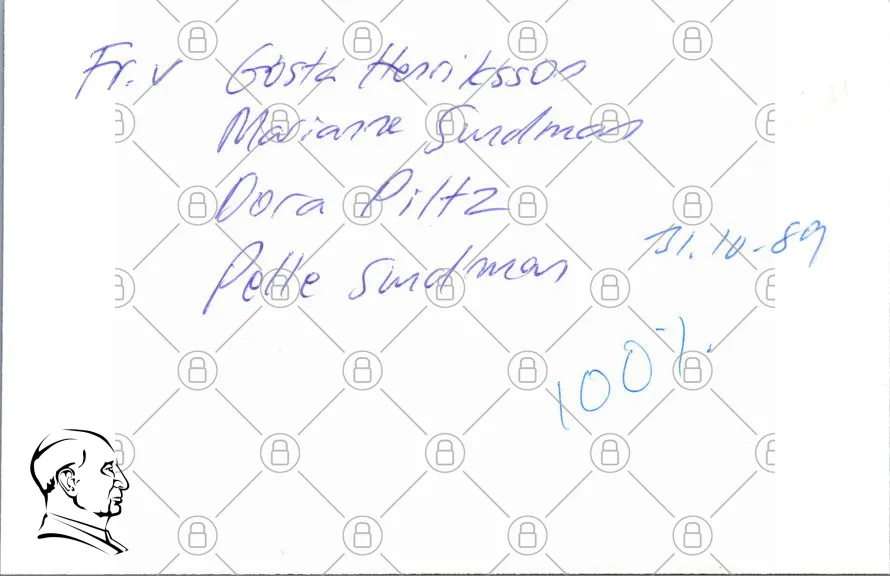 Fr. v Gösta Henriksson
Marianne Sundman
Dora Piltz
Pelle Sundman
31.10-89
100%